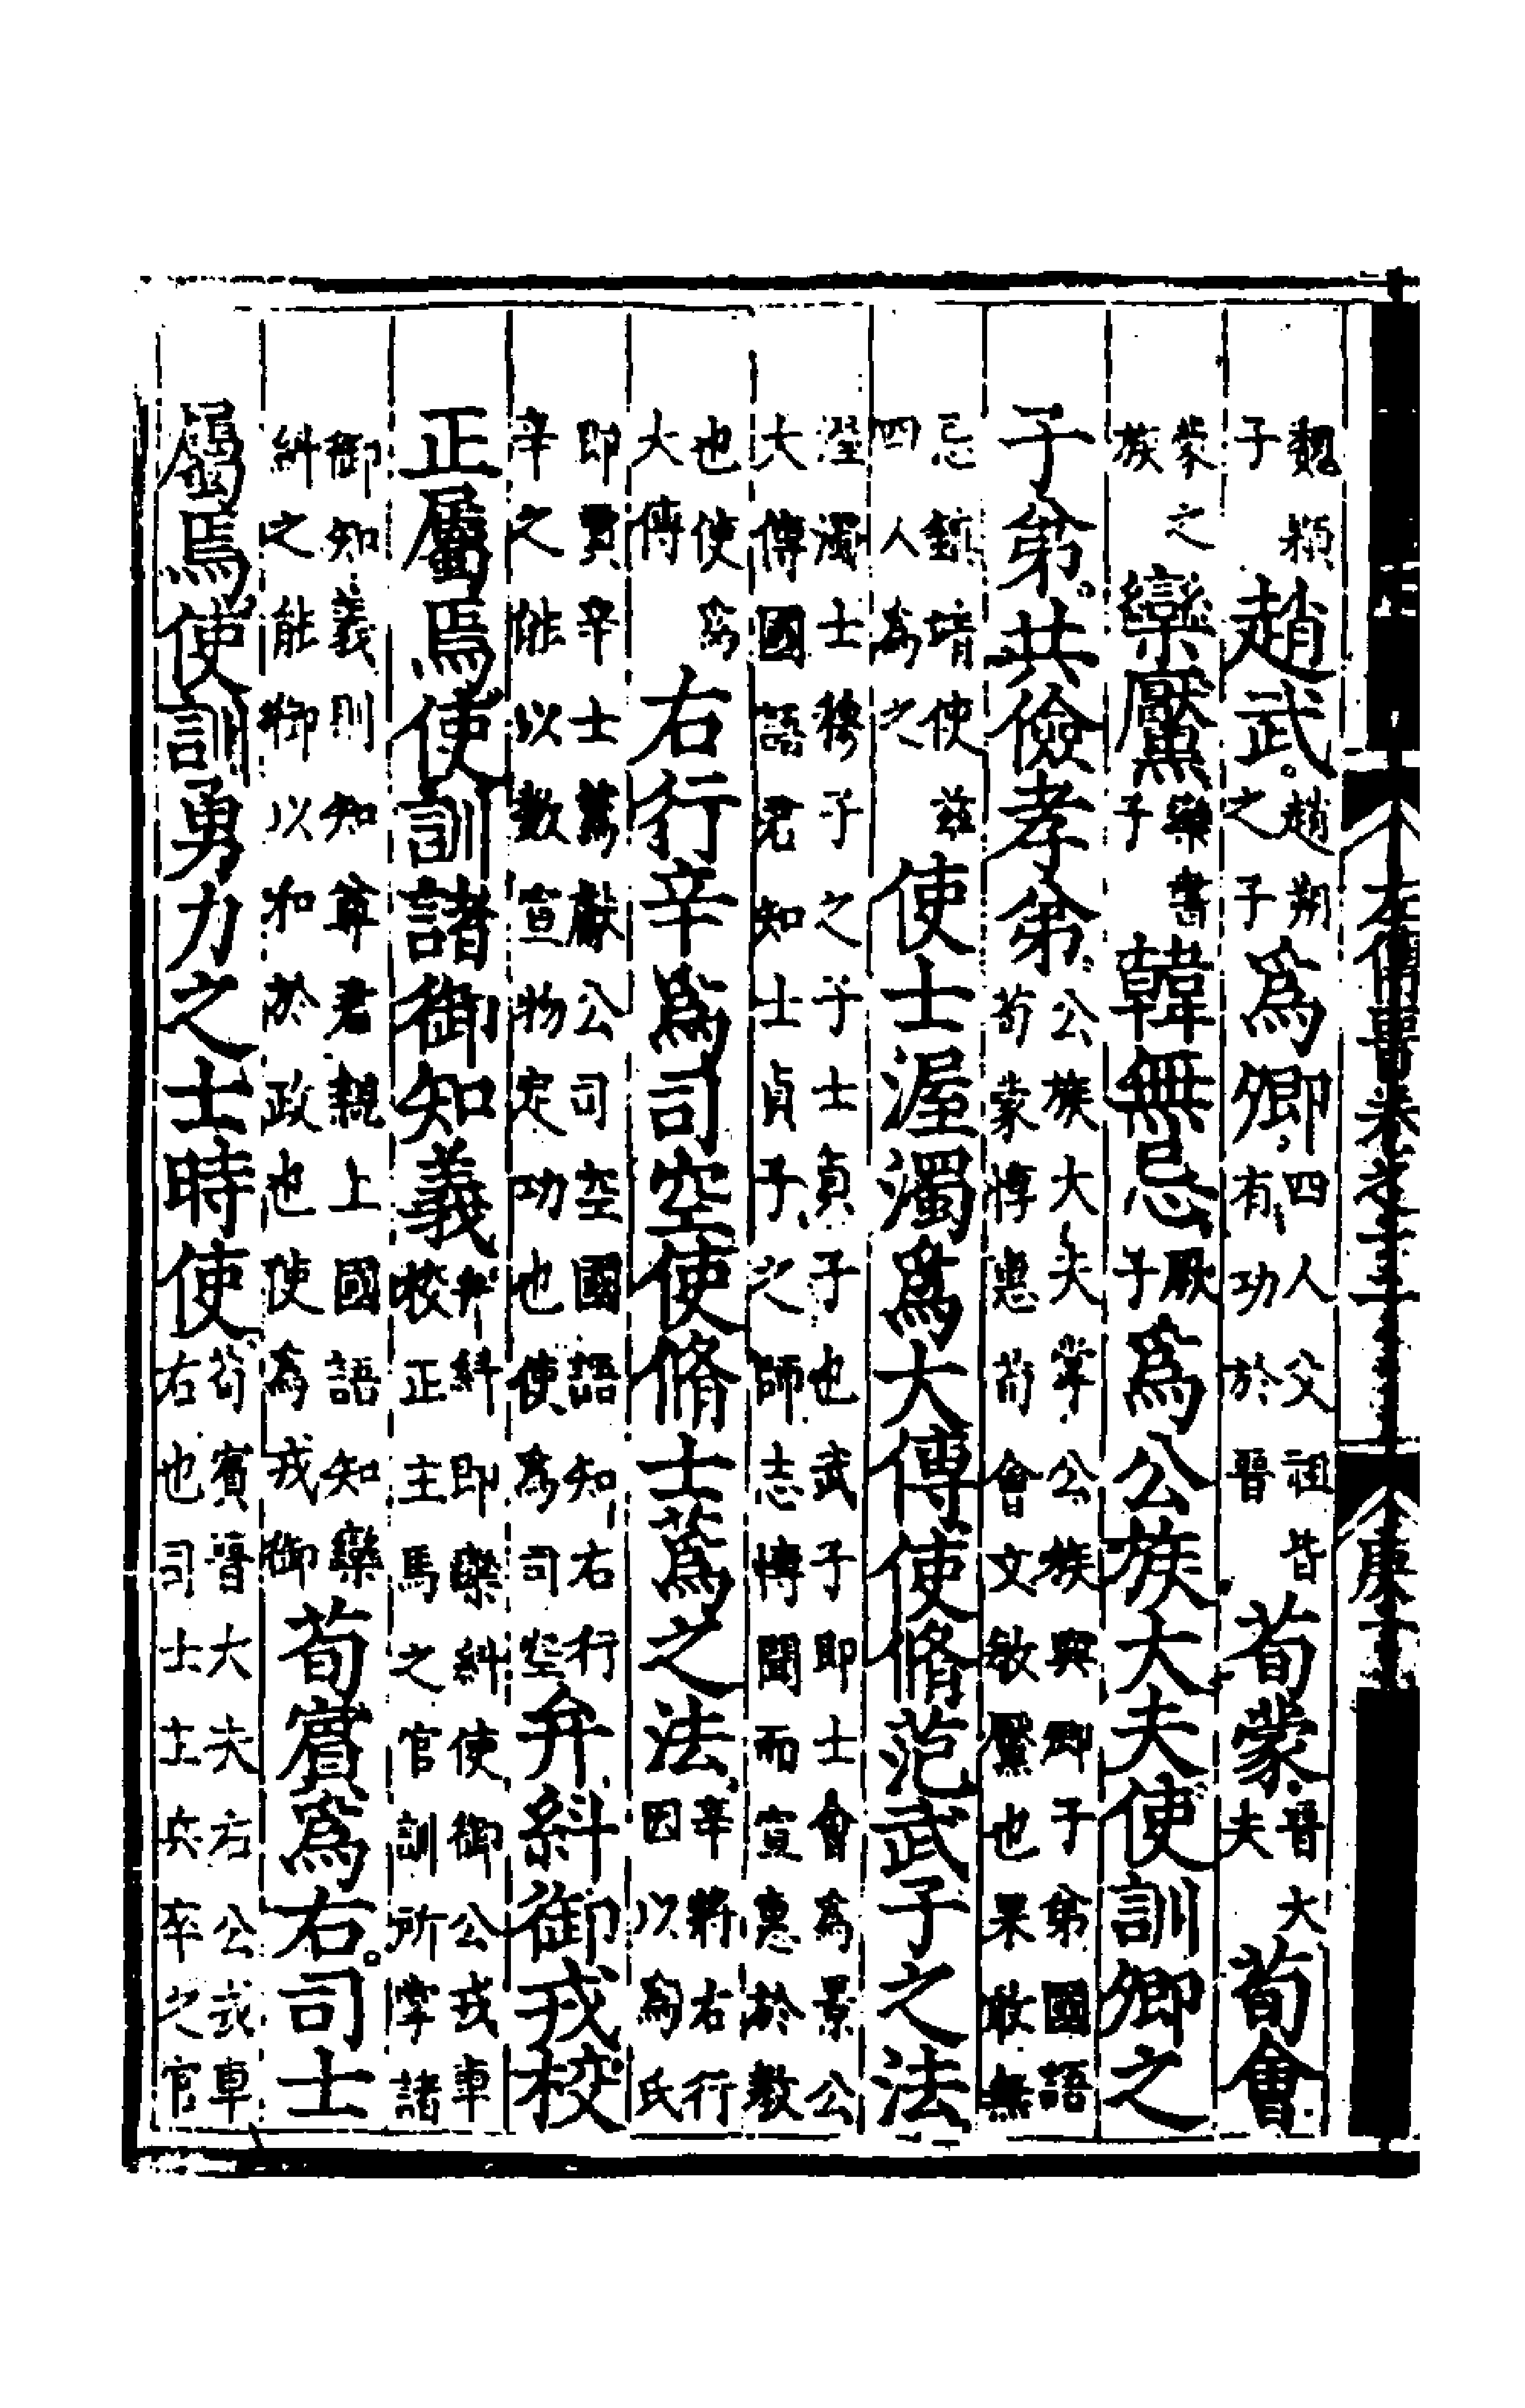 魏顆子趙武。趙朔之子爲卿四人父祖皆有功於晉荀蒙晉大夫荀會
蒙之族欒黶欒書子韓無忌厥子爲公族大夫使訓卿之
子弟共儉孝弟公族大夫掌公族與卿子弟國語荀蒙惇惠荀會文敏黶也果敢無
忌鎮靖使茲四人為之使士渥濁爲大傅使脩范武子之法
渥濁士穆子之子士貞子也武子即士會為景公大傅國語君知士貞子之師志博聞而宣惠於教
也使為大傅右行辛爲司空使脩士蒍之法辛將右行因以為氏
即賈辛士蒍獻公司空國語知右行辛之能以數宣物定功也使為司空弁糾御戎校
正屬焉使訓諸御知義弁糾即欒糾使御公戎車校正主馬之官訓所掌諸
御知義則知尊君親上國語知欒糾之能御以和於政也使為戎御荀賓爲右。司士
屬焉使訓勇力之士時使荀賓晉大夫右公戎車右也司士主兵卒之官